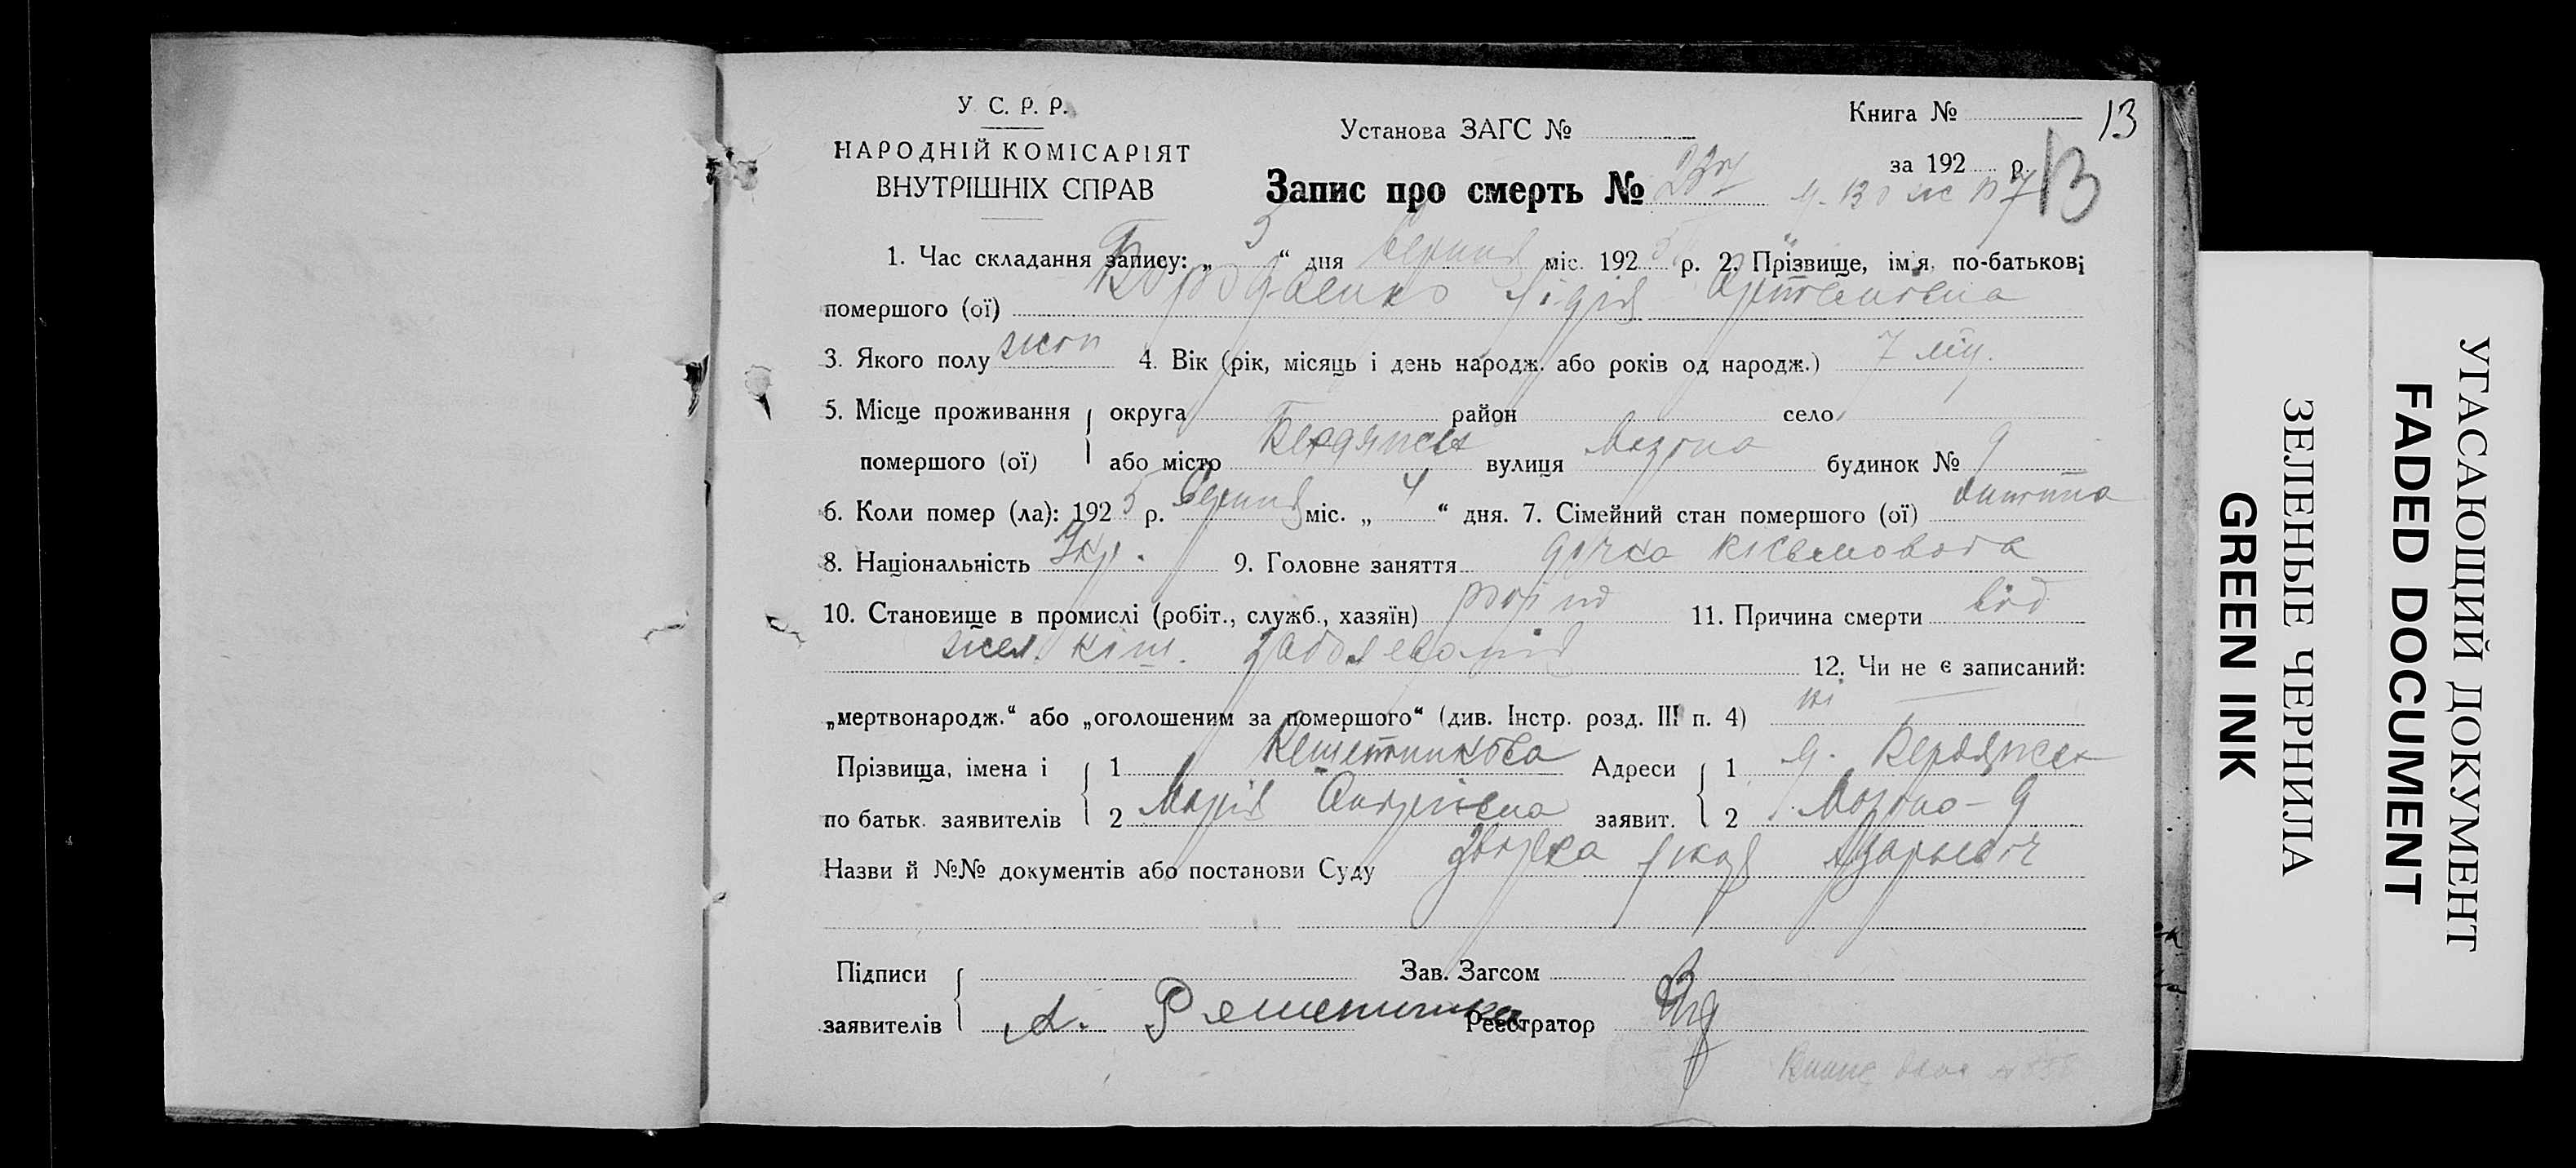 У. С. Р. Р.
НАРОДНІЙ КОМІСАРІЯТ
ВНУТРІШНІХ СПРАВ
Установа ЗАГС №
Книга №
13
за 192 р.
Запис про смерть №
13
1. Час складання запису: „ 5 “ дня Серпня міс. 192 5 р. 2. Прізвище, ім'я, по-батькові
помершого (ої) Бородаенко Лідія
3. Якого полу жен 4. Вік (рік, місяць і день народж. або років од народж.) 7 міс.
5. Місце проживання округа район село
помершого (ої) або місто Бердянськ вулиця будинок № 9
6. Коли помер (ла): 192 5 р. Серпня міс. „ 4 “ дня. 7. Сімейний стан помершого (ої) дитина
8. Національність Укр. 9. Головне заняття дочка
10. Становище в промислі (робіт., служб., хазяїн) 11. Причина смерти від
12. Чи не є записаний:
„мертвонародж.“ або „оголошеним за помершого“ (див. Інстр. розд. III п. 4) ні
Прізвища, імена і 1 Решетникова Адреси 1 г. Бердянськ
по батьк. заявителів 2 Марія Андріівна заявит. 2 9
Назви й №№ документів або постанови Суду
Підписи
Зав. Загсом
заявителів Решетника Реєстратор
УГАСАЮЩИЙ ДОКУМЕНТ
FADED DOCUMENT
ЗЕЛЕНЫЕ ЧЕРНИЛА
GREEN INK